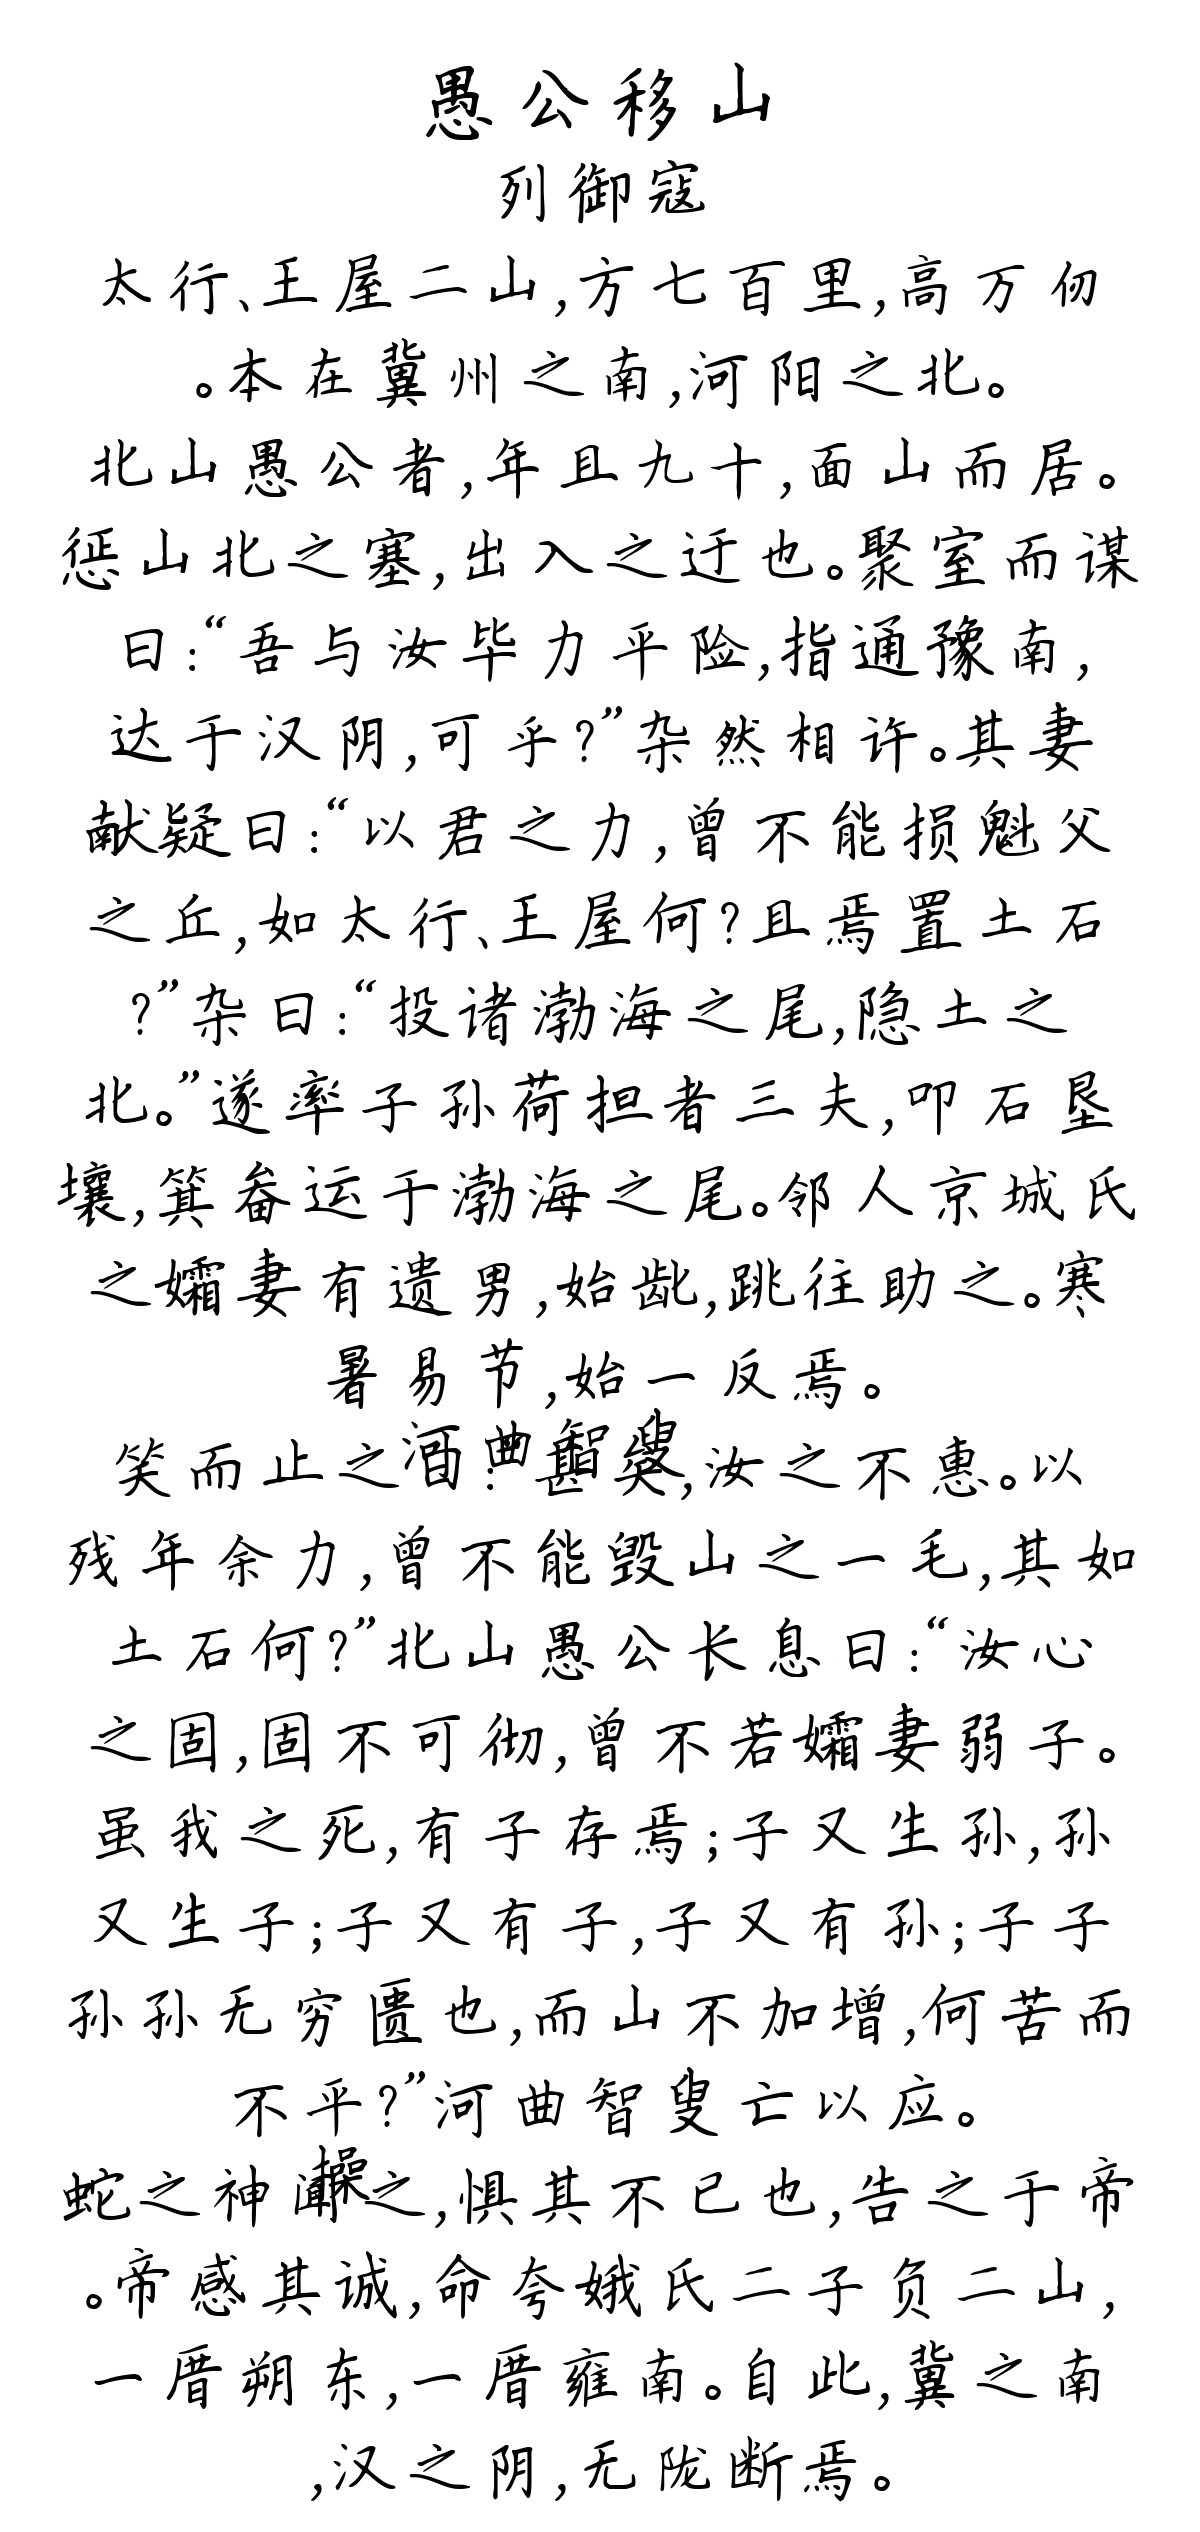 愚公移山
列御寇
太行、王屋二山,方七百里,高万仞
。本在冀州之南,河阳之北。
北山愚公者,年且九十,面山而居。
惩山北之塞,出入之迂也。聚室而谋
曰:“吾与汝毕力平险,指通豫南,
达于汉阴,可乎?”杂然相许。其妻
献疑曰:“以君之力,曾不能损魁父
之丘,如太行、王屋何?且焉置土石
?”杂曰:“投诸渤海之尾,隐土之
北。”遂率子孙荷担者三夫,叩石垦
壤,箕畚运于渤海之尾。邻人京城氏
之孀妻有遗男,始龀,跳往助之。寒
暑易节,始一反焉。
河曲智叟
笑而止之曰:“甚矣,汝之不惠。以
残年余力,曾不能毁山之一毛,其如
土石何?”北山愚公长息曰:“汝心
之固,固不可彻,曾不若孀妻弱子。
虽我之死,有子存焉;子又生孙,孙
又生子;子又有子,子又有孙;子子
孙孙无穷匮也,而山不加增,何苦而
不平?”河曲智叟亡以应。
操
蛇之神闻之,惧其不已也,告之于帝
。帝感其诚,命夸娥氏二子负二山,
一厝朔东,一厝雍南。自此,冀之南
,汉之阴,无陇断焉。